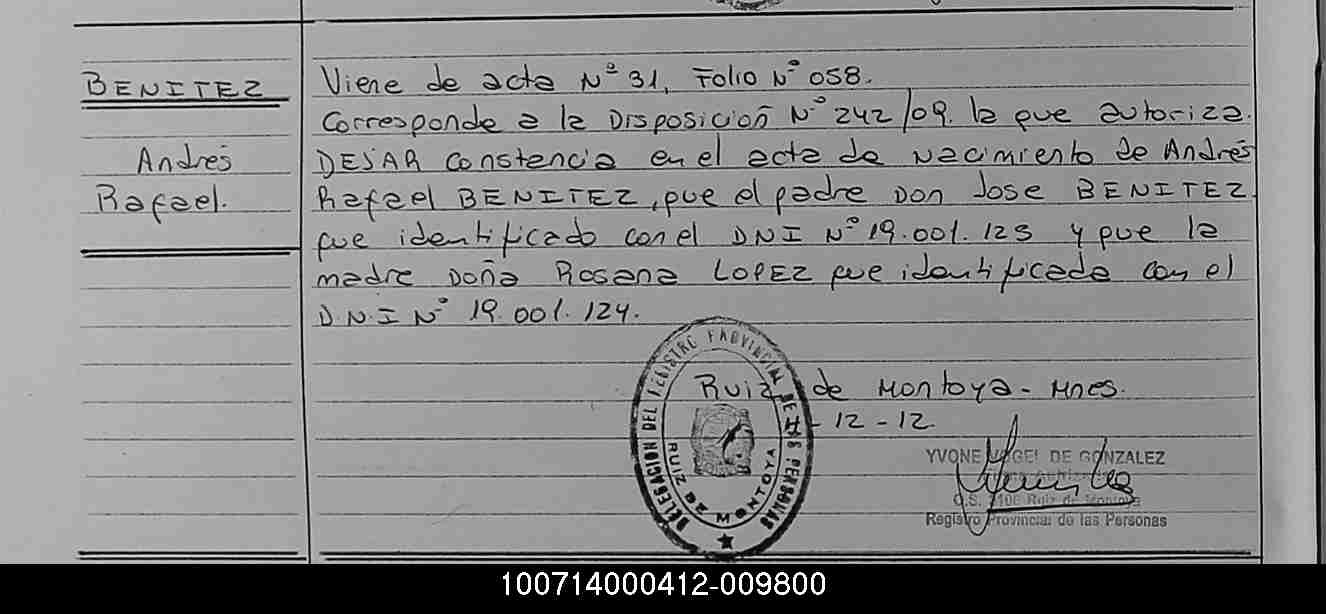 BENITEZ
Andrés
Rafael.
Viene de acta Nº 31, Folio Nº 058.
Corresponde a la Disposición Nº 242/09. la que autoriza.
DEJAR constancia en el acta de Nacimiento de Andrés
Rafael BENITEZ, que el padre Don Jose BENITEZ
fue identificado con el DNI Nº 19.001.123 y que la
madre Doña Rosana LOPEZ fue identificada con el
D.N.I Nº 19.001.124.
Ruiz de Montoya - Mnes.
- 12 - 12.
DELEGACION DEL REGISTRO PROVINCIAL DE LAS PERSONAS
RUIZ DE MONTOYA
YVONE VOGEL DE GONZALEZ
Ruiz de Montoya
Registro Provincial de las Personas
100714000412-009800